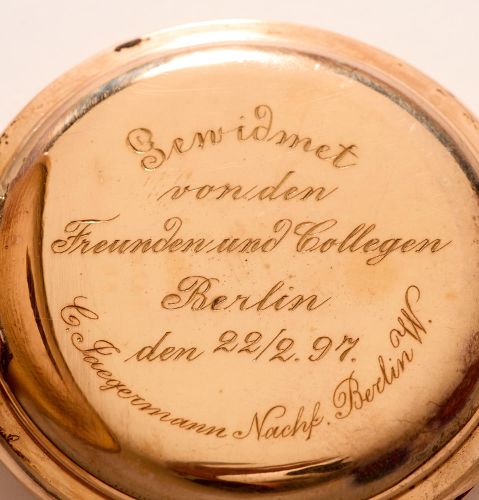 Gewidmet
von den
Freunden und Collegen
Berlin
den 22/2. 97.
C. Jaegermann Nachf. Berlin W.